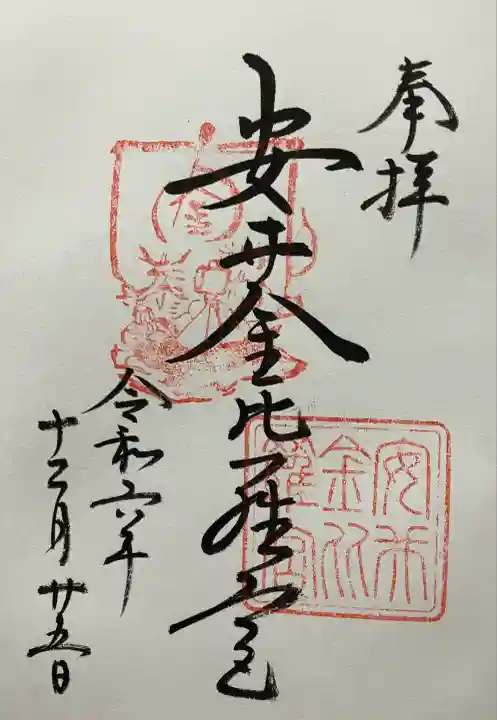 奉拝
安井金比羅宮
令和六年
十二月廿五日
安井
金比
羅宮